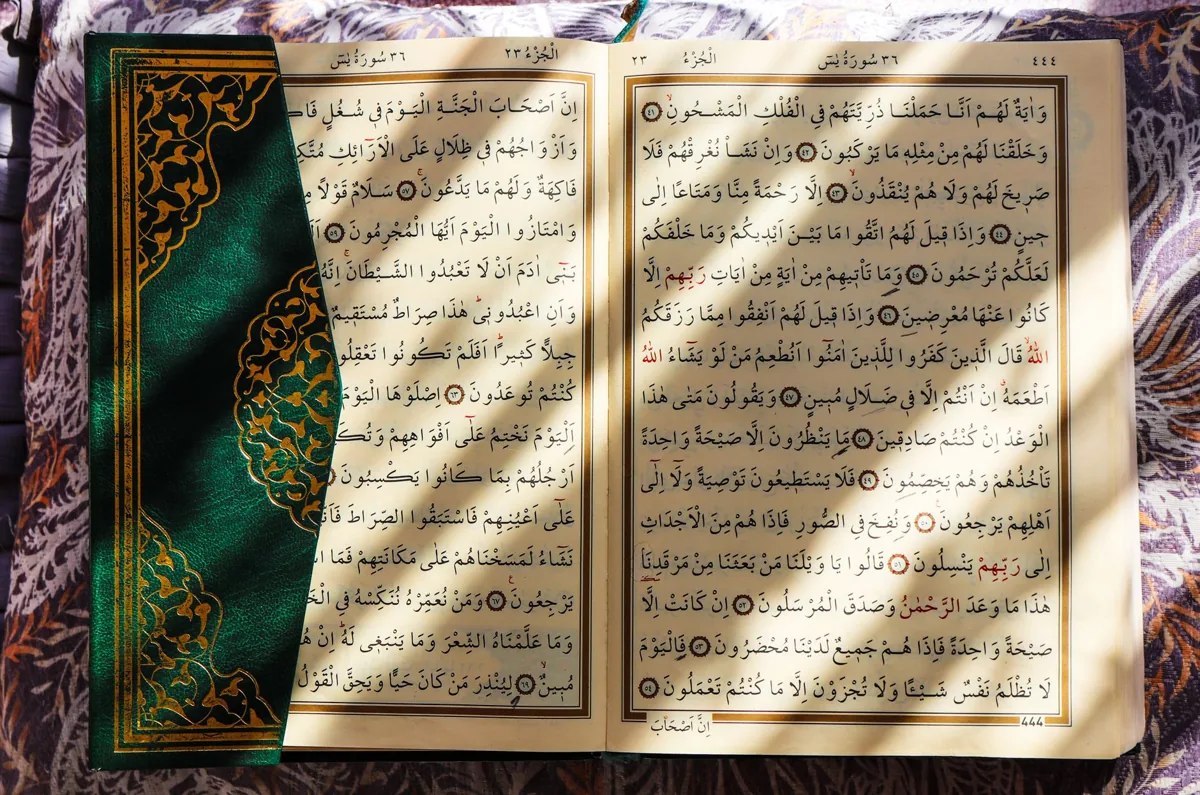 ٤٤٤ ٣٦ سُورَةُ يٰسٓ اَلْجُزْءُ ٢٣
وَاٰيَةٌ لَهُمْ اَنَّا حَمَلْنَا ذُرِّيَّتَهُمْ فِي الْفُلْكِ الْمَشْحُونِۙ ٤١
وَخَلَقْنَا لَهُمْ مِنْ مِثْلِهٖ مَا يَرْكَبُونَ ٤٢ وَاِنْ نَشَأْ نُغْرِقْهُمْ فَلَا
صَرٖيخَ لَهُمْ وَلَا هُمْ يُنْقَذُونَۙ ٤٣ اِلَّا رَحْمَةً مِنَّا وَمَتَاعًا اِلٰى
حٖينٍ ٤٤ وَاِذَا قٖيلَ لَهُمُ اتَّقُوا مَا بَيْنَ اَيْدٖيكُمْ وَمَا خَلْفَكُمْ
لَعَلَّكُمْ تُرْحَمُونَ ٤٥ وَمَا تَأْتٖيهِمْ مِنْ اٰيَةٍ مِنْ اٰيَاتِ رَبِّهِمْ اِلَّا
كَانُوا عَنْهَا مُعْرِضٖينَ ٤٦ وَاِذَا قٖيلَ لَهُمْ اَنْفِقُوا مِمَّا رَزَقَكُمُ
اللّٰهُۙ قَالَ الَّذٖينَ كَفَرُوا لِلَّذٖينَ اٰمَنُٓوا اَنُطْعِمُ مَنْ لَوْ يَشَٓاءُ اللّٰهُ
اَطْعَمَهُۗ اِنْ اَنْتُمْ اِلَّا فٖي ضَلَالٍ مُبٖينٍ ٤٧ وَيَقُولُونَ مَتٰى هٰذَا
الْوَعْدُ اِنْ كُنْتُمْ صَادِقٖينَ ٤٨ مَا يَنْظُرُونَ اِلَّا صَيْحَةً وَاحِدَةً
تَأْخُذُهُمْ وَهُمْ يَخِصِّمُونَ ٤٩ فَلَا يَسْتَطٖيعُونَ تَوْصِيَةً وَلَٓا اِلٰٓى
اَهْلِهِمْ يَرْجِعُونَ ٥٠ وَنُفِخَ فِي الصُّورِ فَاِذَا هُمْ مِنَ الْاَجْدَاثِ
اِلٰى رَبِّهِمْ يَنْسِلُونَ ٥١ قَالُوا يَا وَيْلَنَا مَنْ بَعَثَنَا مِنْ مَرْقَدِنَا
هٰذَا مَا وَعَدَ الرَّحْمٰنُ وَصَدَقَ الْمُرْسَلُونَ ٥٢ اِنْ كَانَتْ اِلَّا
صَيْحَةً وَاحِدَةً فَاِذَا هُمْ جَمٖيعٌ لَدَيْنَا مُحْضَرُونَ ٥٣ فَالْيَوْمَ
لَا تُظْلَمُ نَفْسٌ شَيْـًٔا وَلَا تُجْزَوْنَ اِلَّا مَا كُنْتُمْ تَعْمَلُونَ ٥٤
444
اِنَّ اَصْحَابَ
٣٦ سُورَةُ يٰسٓ اَلْجُزْءُ ٢٣
اِنَّ اَصْحَابَ الْجَنَّةِ الْيَوْمَ فٖي شُغُلٍ
وَاَزْوَاجُهُمْ فٖي ظِلَالٍ عَلَى الْاَرَٓائِكِ
فَاكِهَةٌ وَلَهُمْ مَا يَدَّعُونَۚ ٥٧ سَلَامٌ قَوْلًا
وَامْتَازُوا الْيَوْمَ اَيُّهَا الْمُجْرِمُونَ ٥٩
بَنٖٓي اٰدَمَ اَنْ لَا تَعْبُدُوا الشَّيْطَانَۚ اِنَّهُ
وَاَنِ اعْبُدُونٖيۜ هٰذَا صِرَاطٌ مُسْتَقٖيمٌ
جِبِلًّا كَثٖيرًاۜ اَفَلَمْ تَكُونُوا تَعْقِلُو
كُنْتُمْ تُوعَدُونَ ٦٣ اِصْلَوْهَا الْيَوْمَ
اَلْيَوْمَ نَخْتِمُ عَلٰٓى اَفْوَاهِهِمْ وَتُكَ
اَرْجُلُهُمْ بِمَا كَانُوا يَكْسِبُونَ
عَلٰٓى اَعْيُنِهِمْ فَاسْتَبَقُوا الصِّرَاطَ
نَشَٓاءُ لَمَسَخْنَاهُمْ عَلٰى مَكَانَتِهِمْ فَمَا
يَرْجِعُونَ۟ ٦٧ وَمَنْ نُعَمِّرْهُ نُنَكِّسْهُ فِي
وَمَا عَلَّمْنَاهُ الشِّعْرَ وَمَا يَنْبَغٖي لَهُۜ اِنْ
مُبٖينٌۙ ٦٩ لِيُنْذِرَ مَنْ كَانَ حَيًّا وَيَحِقَّ الْقَوْلُ